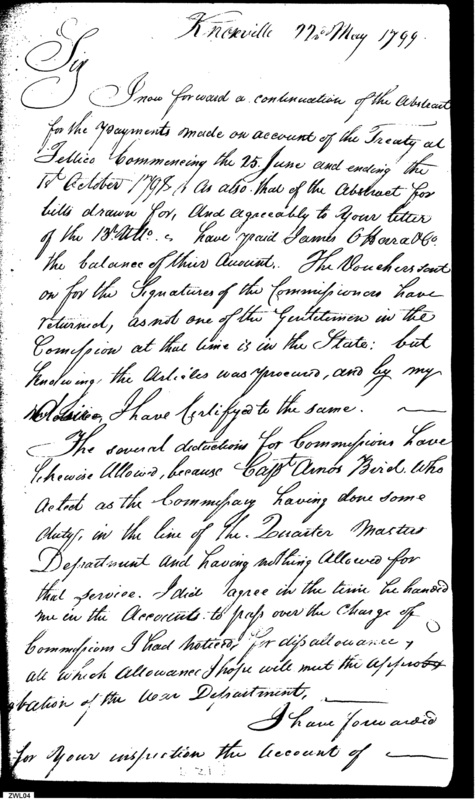 Knoxville 22nd May 1799.
Sir
I now forward a continuation of the Abstract
for the payments made on account of the Treaty at
Tellico Commencing the 25 June and ending the
1st October 1798, As also that of the Abstract for
bills drawn for, And agreeably to Your letter
of the 13th Ulto. have paid James OHara & Co.
the balance of their Amount. The Vouchers sent
on for the Signatures of the Commissioners have
returned, as not one of the Gentlemen in the
Comission at that time is in the State; but
knowing the Articles was procured, and by my
I have Certifyed to the same.
The several deductions for Commissions have
likewise Allowed, because Capt. Amos Bird who
acted as the Commissary having done some
duty, in the line of the Quarter Masters
Department and having nothing Allowed for
that service. I did agree in the time he handed
me in the Accounts to pass over the Charge of
Commissions I had noticed for disallowance,
all which Allowance I hope will meet the approb
bation of the War Department,
I have forwarded
for Your inspection the Account of
ZWL04